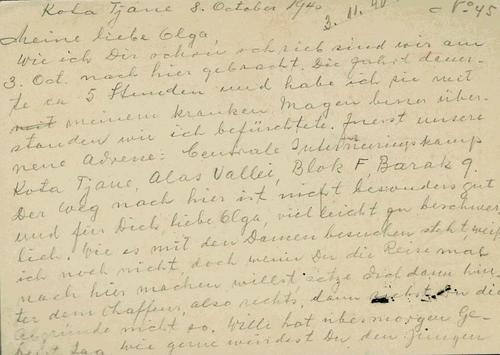 Kota Tjane 8. October 1940
3.11.40 No 45
Meine liebe Olga,
Wie ich Dir schon schrieb sind wir am
3. Oct. nach hier gebracht. Die Fahrt dauer-
te ca 5 Stunden und habe ich sie mit
meinem kranken Magen besser über-
standen wie ich befürchtete. Zuerst unsere
neue Adresse: Centrale Interneringskamp
Kota Tjane, Alas Vallei, Blok F, Barak 9.
Der Weg nach hier ist nicht besonders gut
und für Dich, liebe Olga, vielleicht zu beschwer
lich. Wie es mit den Damen besuchen steht weiß
ich noch nicht, doch wenn Du die Reise mal
nach hier machen willst, setze Dich dann hin
ter dem Chauffeur, also rechts, dann siehst Du die
Abgründe nicht so. Wille hat übermorgen Ge-
burtstag wie gerne würdest Du den Jungen